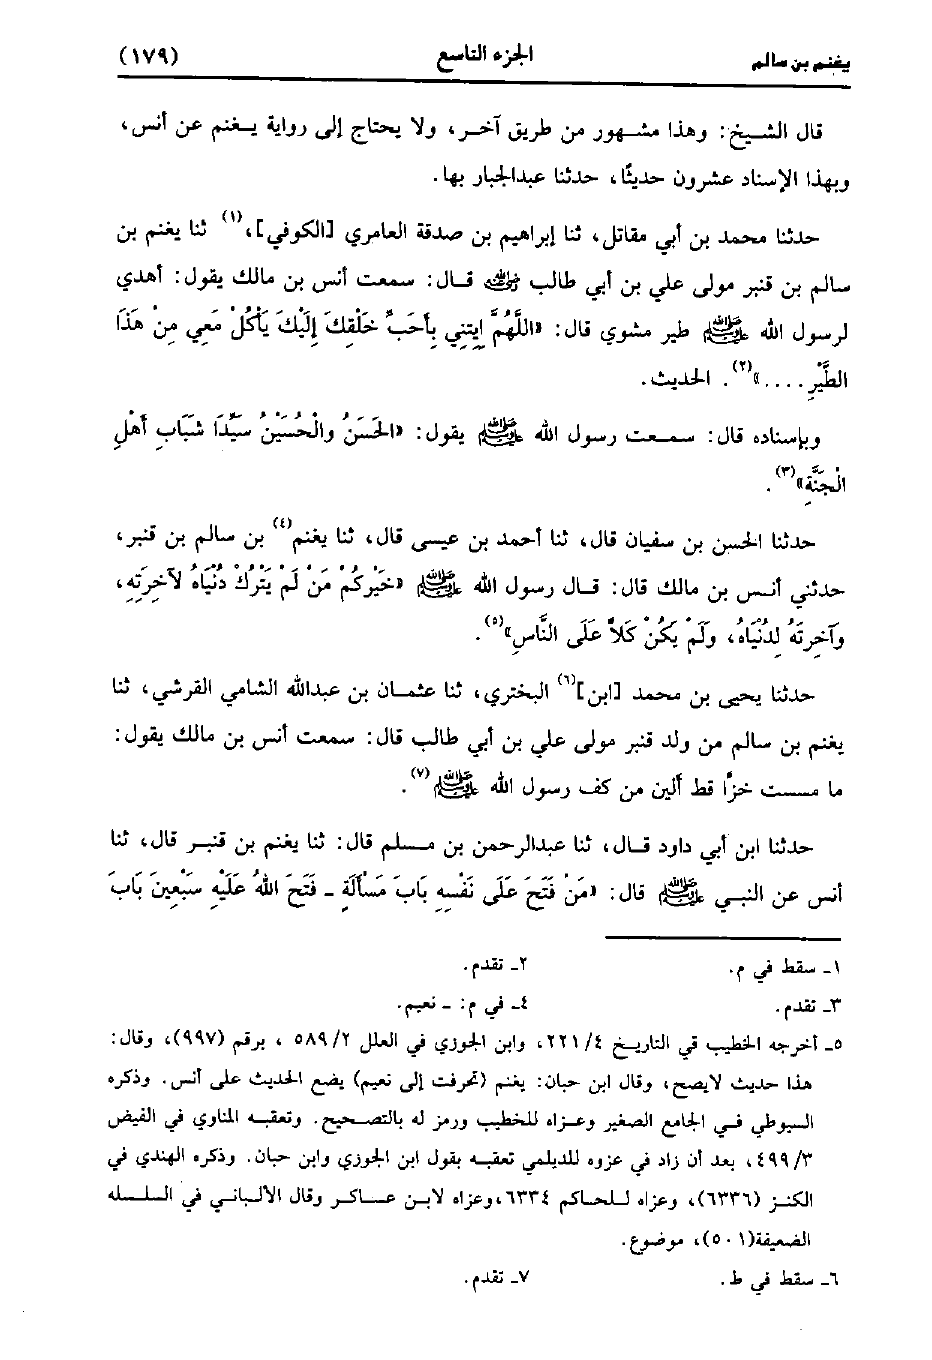 يغنم بن سالم الجزء التاسع (١٧٩)
قال الشيخ: وهذا مشهور من طريق آخر، ولا يحتاج إلى رواية يغنم عن أنس،
وبهذا الإسناد عشرون حديثًا، حدثنا عبدالجبار بها.
حدثنا محمد بن أبي مقاتل، ثنا إبراهيم بن صدقة العامري [الكوفي]،(١) ثنا يغنم بن
سالم بن قنبر مولى علي بن أبي طالب ﵁ قال: سمعت أنس بن مالك يقول: أهدي
لرسول الله ﷺ طير مشوي قال: «اللَّهُمَّ إيتِنِي بِأَحَبِّ خَلْقِكَ إِلَيْكَ يَأْكُلْ مَعِي مِنْ هَذَا
الطَّيْرِ ....»(٢). الحديث.
وبإسناده قال: سمعت رسول الله ﷺ يقول: «الحَسَنُ والْحُسَيْنُ سَيِّدَا شَبَابِ أَهْلِ
الْجَنَّةِ»(٣).
حدثنا الحسن بن سفيان قال، ثنا أحمد بن عيسى قال، ثنا يغنم(٤) بن سالم بن قنبر،
حدثني أنس بن مالك قال: قال رسول الله ﷺ «خَيْرُكُمْ مَنْ لَمْ يَتْرُكْ دُنْيَاهُ لآخِرَتِهِ،
وَآخِرَتَهُ لِدُنْيَاهُ، وَلَمْ يَكُنْ كَلاًّ عَلَى النَّاسِ»(٥).
حدثنا يحيى بن محمد [ابن](٦) البختري، ثنا عثمان بن عبدالله الشامي القرشي، ثنا
يغنم بن سالم من ولد قنبر مولى علي بن أبي طالب قال: سمعت أنس بن مالك يقول:
ما مسست خزًّا قط ألين من كف رسول الله ﷺ(٧).
حدثنا ابن أبي داود قال، ثنا عبدالرحمن بن مسلم قال: ثنا يغنم بن قنبر قال، ثنا
أنس عن النبي ﷺ قال: «مَنْ فَتَحَ عَلَى نَفْسِهِ بَابَ مَسْأَلَةٍ - فَتَحَ اللهُ عَلَيْهِ سَبْعِينَ بَابَ
١ـ سقط في م. ٢ـ تقدم.
٣ـ تقدم. ٤ـ في م: ـ نعيم.
٥ـ أخرجه الخطيب قي التاريخ ٢٢١/٤، وابن الجوزي في العلل ٥٨٩/٢ ، برقم (٩٩٧)، وقال:
هذا حديث لايصح، وقال ابن حبان: يغنم (تحرفت إلى نعيم) يضع الحديث على أنس. وذكره
السيوطي في الجامع الصغير وعزاه للخطيب ورمز له بالتصحيح. وتعقبه المناوي في الفيض
٤٩٩/٣، بعد أن زاد في عزوه للديلمي تعقبه بقول ابن الجوزي وابن حبان. وذكره الهندي في
الكنز (٦٣٣٦)، وعزاه للحاكم ٦٣٣٤،وعزاه لابن عساكر وقال الألباني في السلسله
الضعيفة(٥٠١)، موضوع.
٦ـ سقط في ط. ٧ـ تقدم.